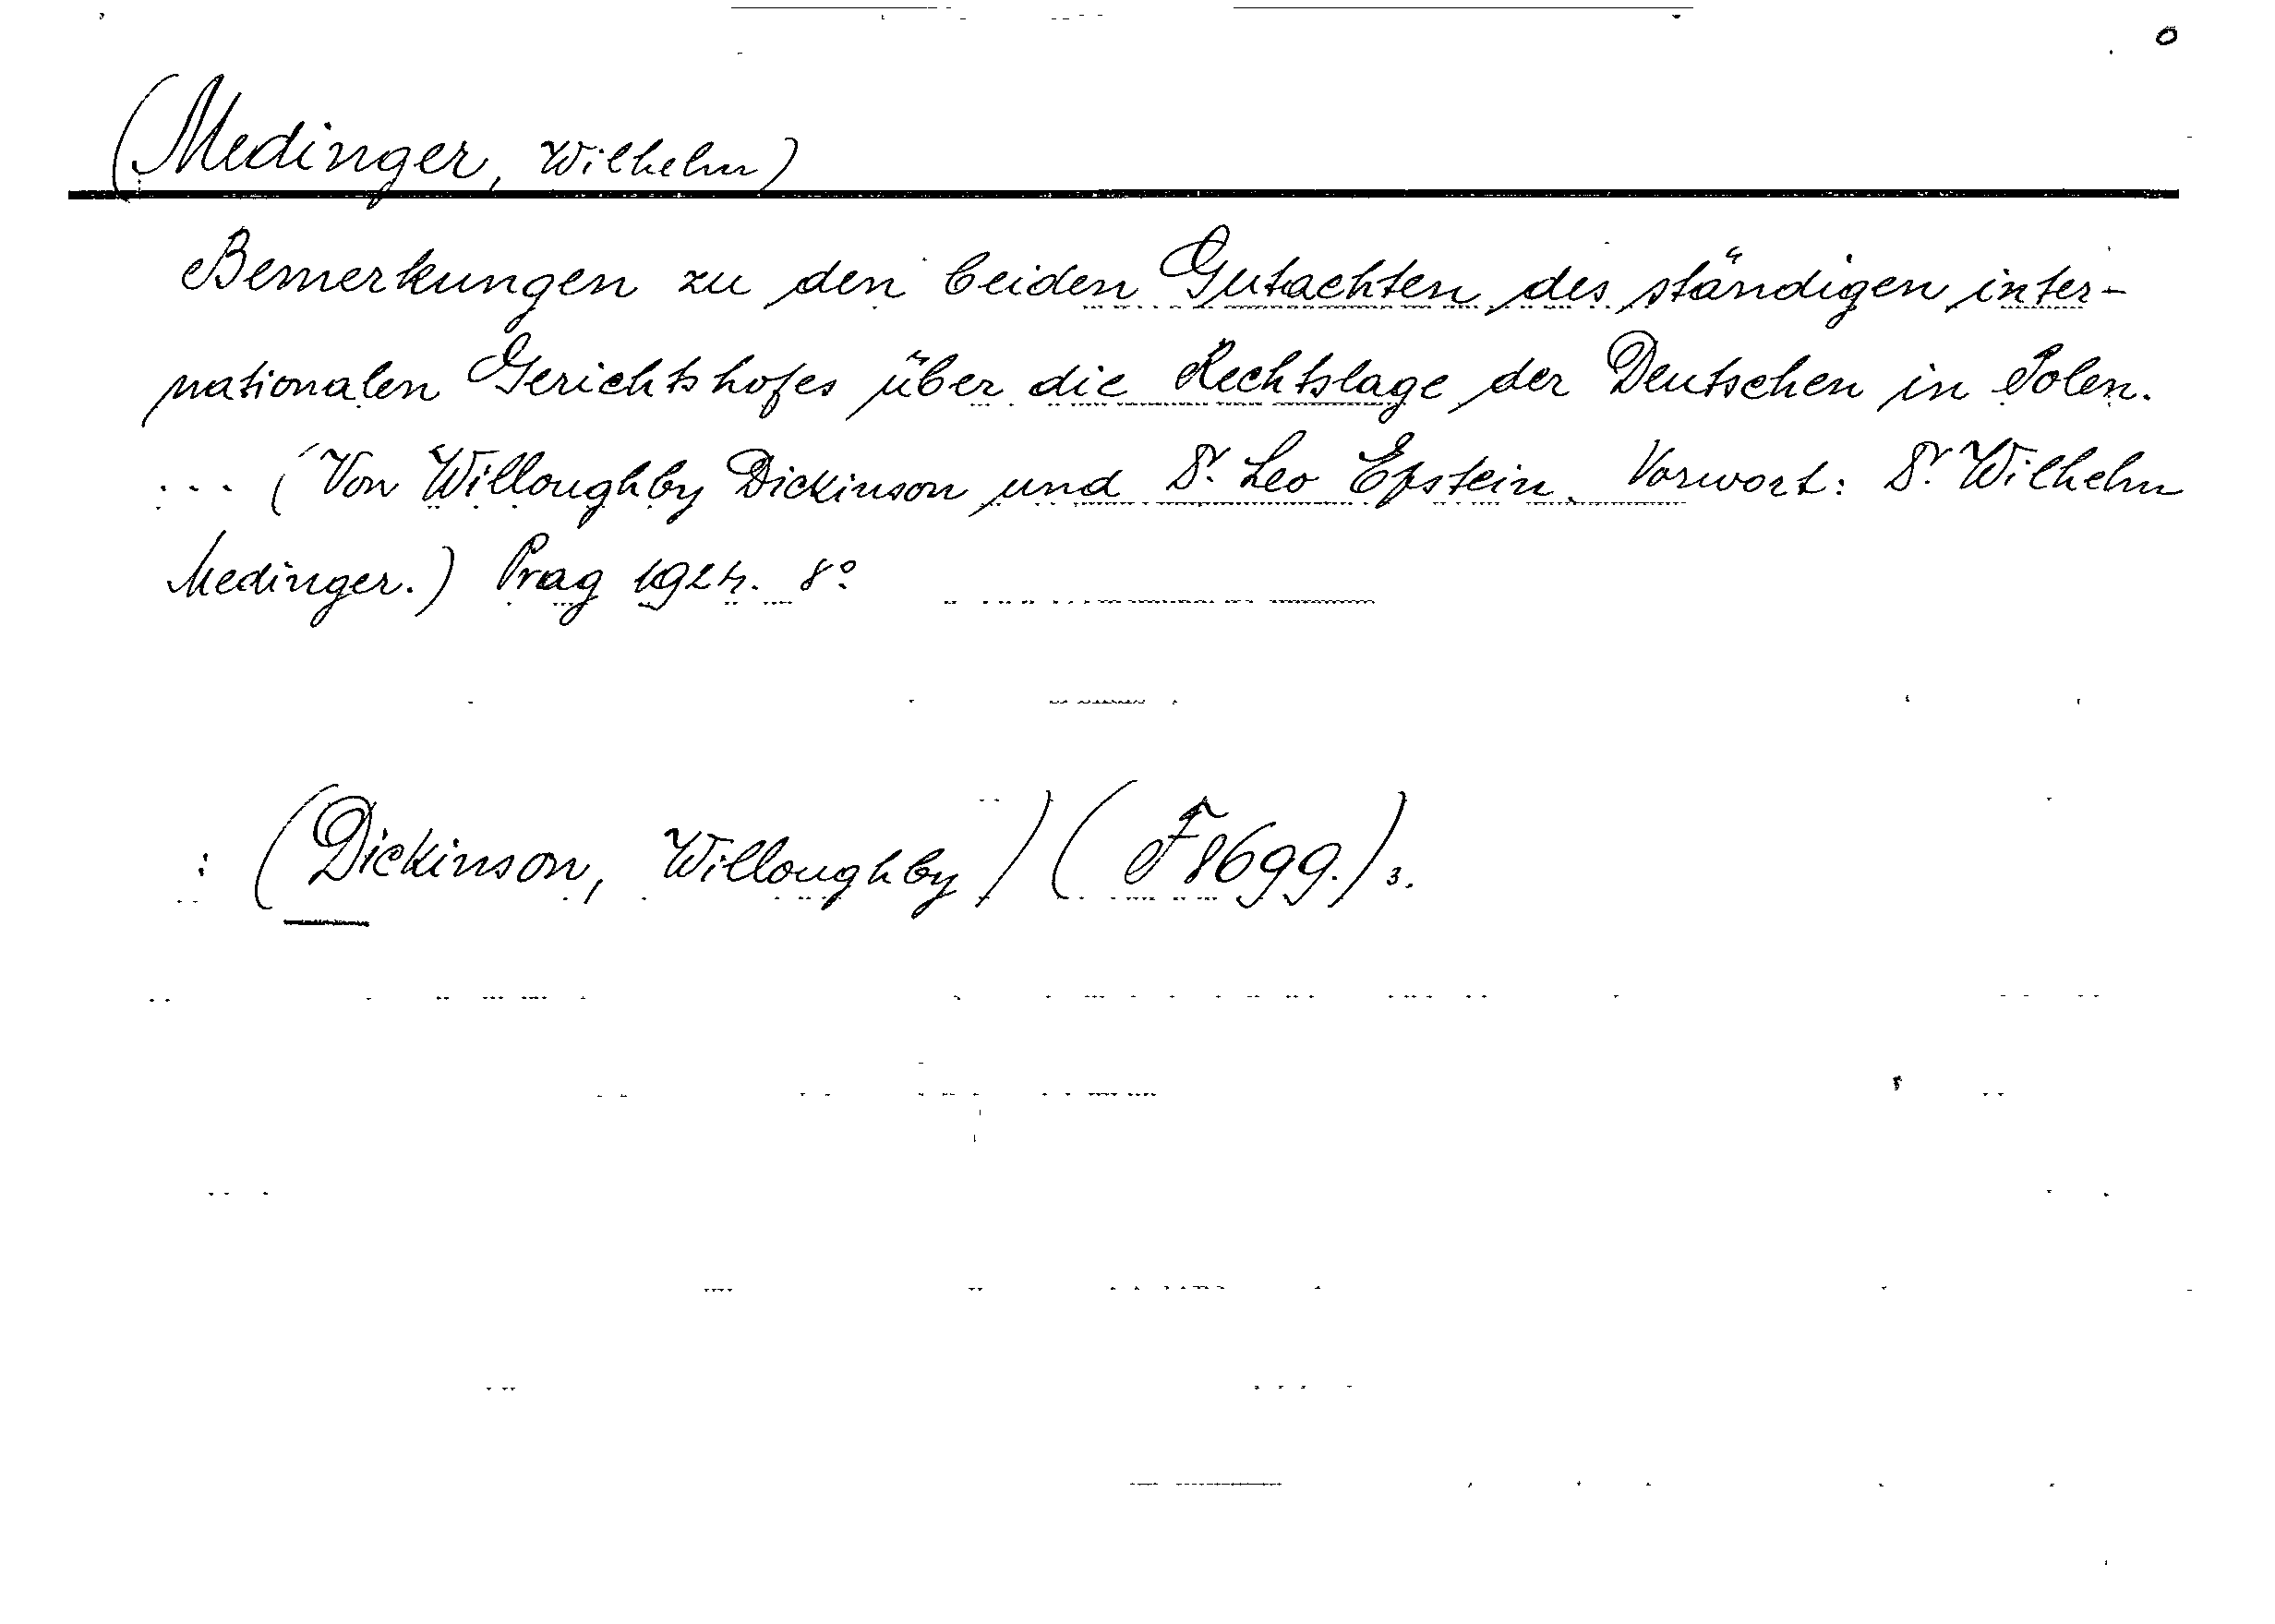 o
(Medinger, Wilhelm)
Bemerkungen zu den beiden Gutachten des ständigen inter-
nationalen Gerichtshofes über die Rechtslage der Deutschen in Polen.
... (Von Willoughby Dickinson und Dr. Leo Epstein. Vorwort: Dr. Wilhelm
Medinger.) Prag 1924. 8°.
: (Dickinson, Willoughby) (F 8699.) 3.